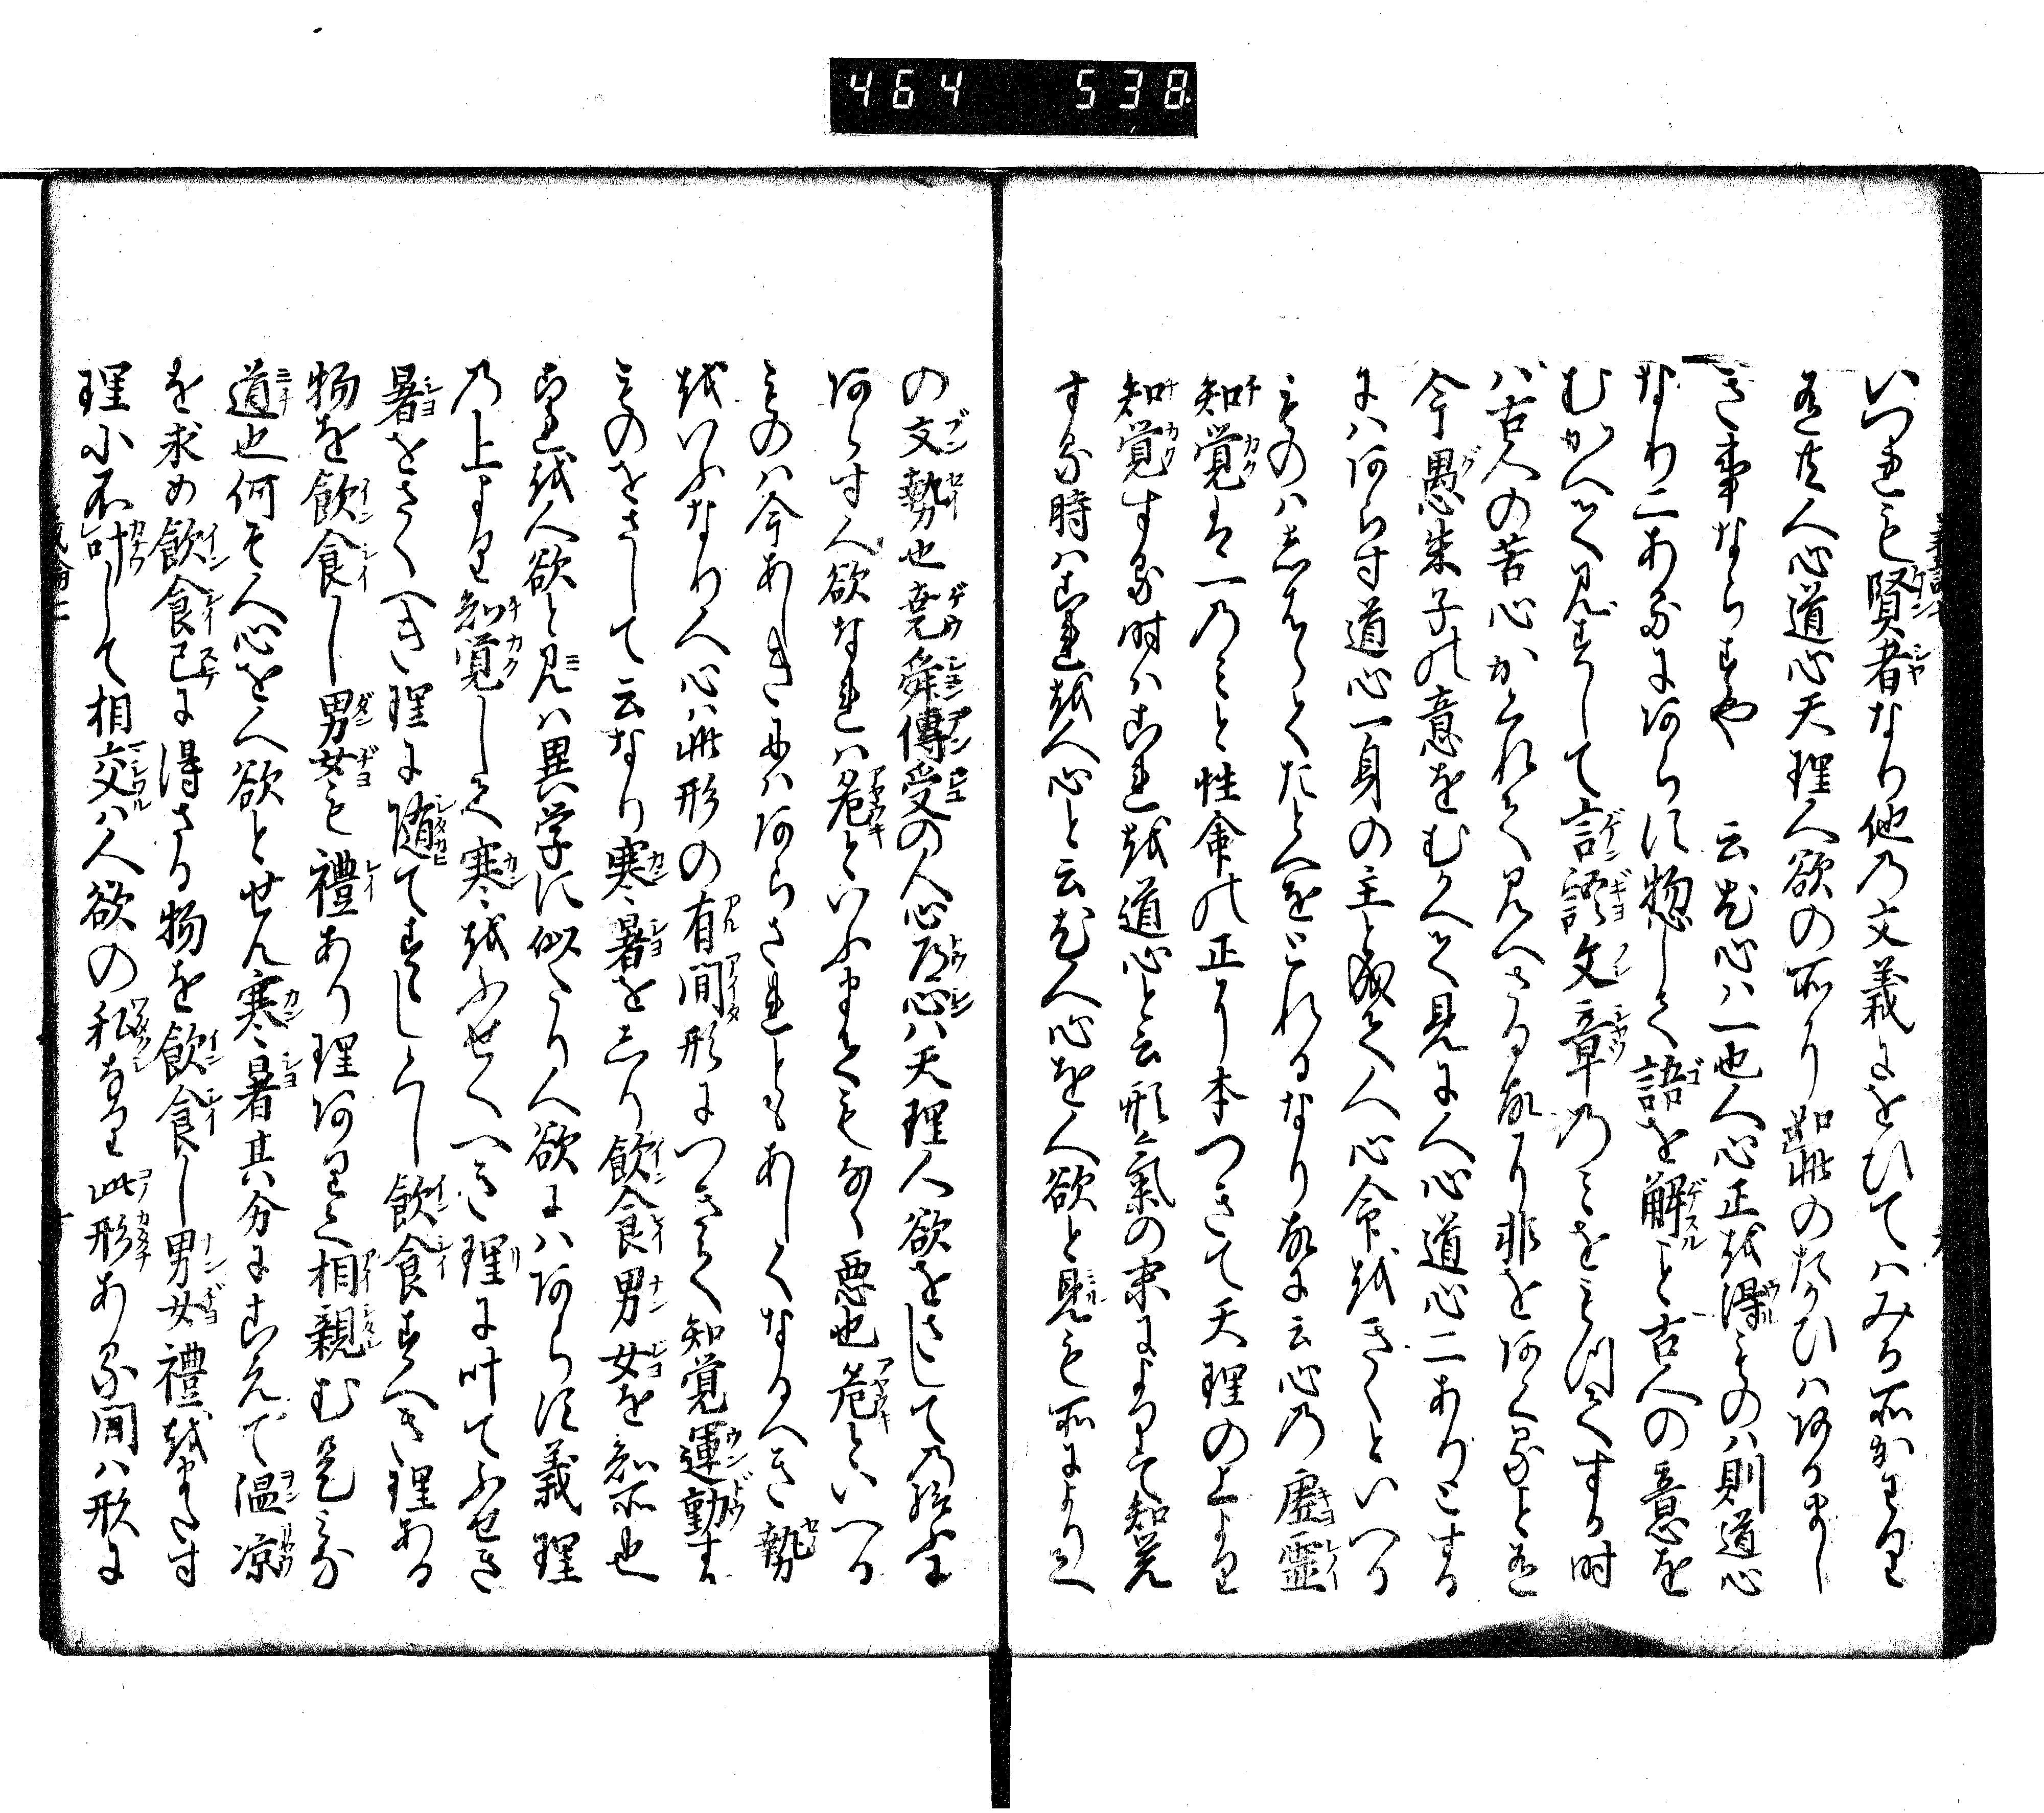 464 538
いつれも賢者なり他の文義にをひてハみる所かはり
有共人心道心天理人欲の所に如此のたかひハ有まし
き事ならすや 云尤心ハ一也人心正を得ものハ則道心
なり二あるにあらす惣して語を解と古人の意を
むかへて見すして言語文章のミをミつくする時
ハ古人の苦心かくれて見へさる故に非をあくると有
今愚朱子の意をむかへて見に人心道心二ありとする
にハあらす道心一身の主と成て人心命をきくといへる
ものハしはらくたとへをとれるなり故に云心の虚霊
知覚は一のミと性命の正に本つきて天理の上より
知覚する時ハこれを道心と云形氣の末によりて知覚
する時ハこれを人心と云尤人心を人欲と見も所によりて
の文勢也堯舜傳受の人心道心ハ天理人欲をさしての給ふに
あらす人欲なれハ危といふまてもなく悪也危といへる
ものハ今あしきにハあらされともあしくなるへき勢
をいふなり人心ハ此形の有間形につきて知覚運動する
ものをさして云なり寒暑をしり飲食男女を知所也
これを人欲と見ハ異学に似たり人欲にハあらす義理
の上より知覚して寒をふせくへき理に叶てふせき
暑をさくへき理に随てすゝしくし飲食すへき理ある
物を飲食し男女も禮あり理ありて相親む是皆
道也何そ人心を人欲とせん寒暑其分にこえて温涼
を求め飲食己に得さる物を飲食し男女禮をまたす
理に不叶して相交ハ人欲の私なり此形ある間ハ形に